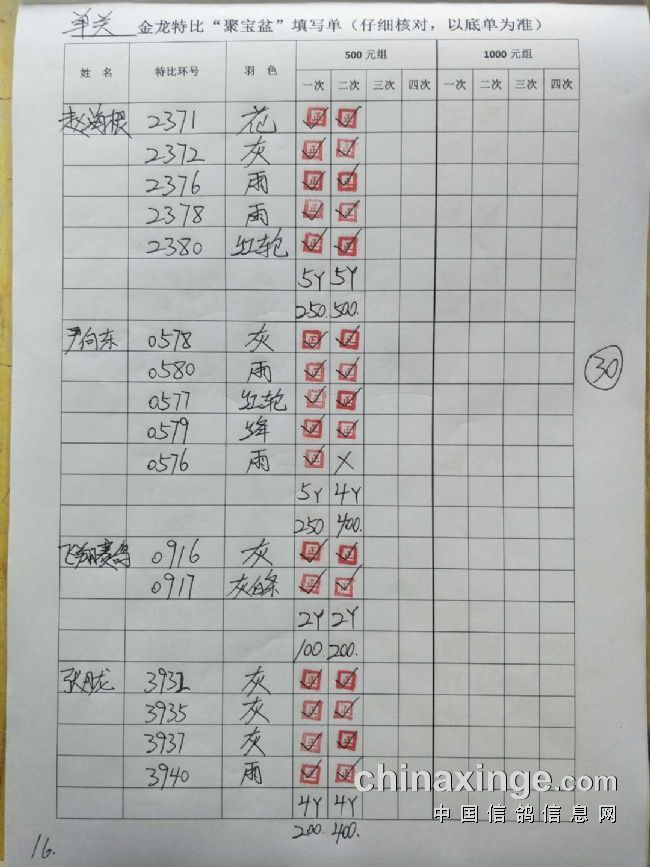 单关 金龙特比“聚宝盆”填写单（仔细核对，以底单为准）
姓 名 特比环号 羽 色 500 元组 1000 元组
一次 二次 三次 四次 一次 二次 三次 四次
赵海根 2371 花 正 正
2372 灰 正 正
2376 雨 正 正
2378 雨 正 正
2380 红轮 正 正
5Y 5Y
250. 500.
尹向东 0578 灰 正 正
0580 雨 正 正
0577 红轮 正 正
0579 绛 正 正
0576 雨 正 X
5Y 4Y
250 400.
飞翔赛鸽 0916 灰 正 正
0917 灰白条 正 正
2Y 2Y
100 200.
张龙 3932 灰 正 正
3935 灰 正 正
3937 灰 正 正
3940 雨 正 正
4Y 4Y
200. 400.
30
16.
chinaxinge.com
中国信鸽信息网